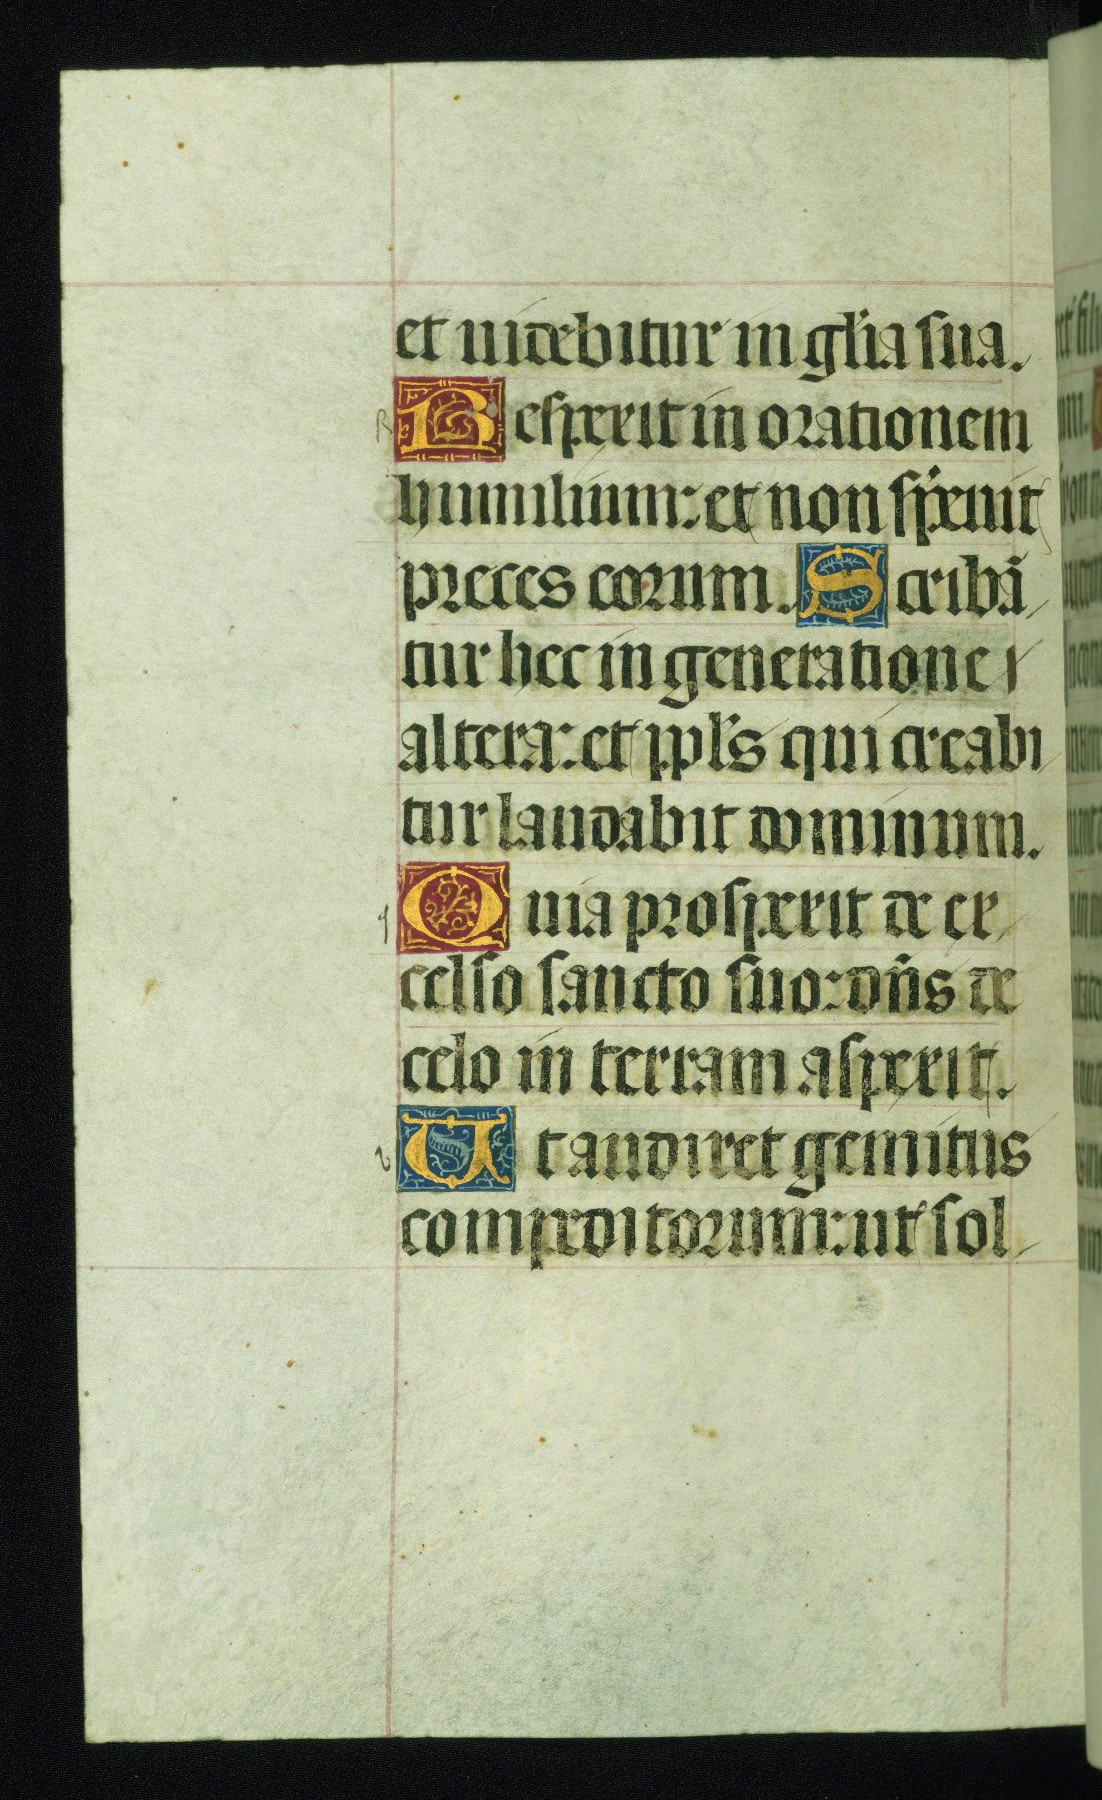 et uidebitur in gl'ia sua.
Respexit in orationem
humilium: et non sp̄xuit
preces eorum. Scribā
tur hec in generatione
altera: et ppl's qui creabi
tur laudabit dominum.
Quia prospexit de ex
celso sancto suo: dn̄s de
celo in terram aspexit.
Ut audiret gemitus
compeditorum: ut sol